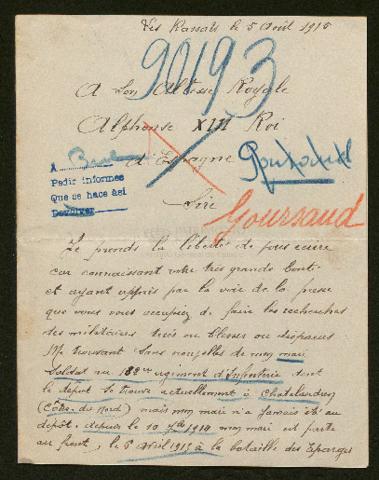 Les Ransats le 5 Août 1915
90193
A Son Altesse Royale
Alphonse XIII Roi
d'Espagne
A
Pedir informes
Que se hace ási
Devolver
Goursaud
Sire
Je prends la liberté de vous écrire
car connaissant votre très grande bonté
et ayant appris par la voie de la presse
que vous vous occupiez de faire les recherches
des militaires tués ou blessés ou disparus
Me trouvant sans nouvelles de mon mari
Soldat au 132eme regiment d'Infanterie dont
le dépot se trouve actuellement à Chatelaudren
(Côtes-du-Nord) mais mon mari n'a jamais été au
dépôt, depuis le 10 1914 mon mari est parti
au front, le 6 avril 1915 à la bataille des Eparges